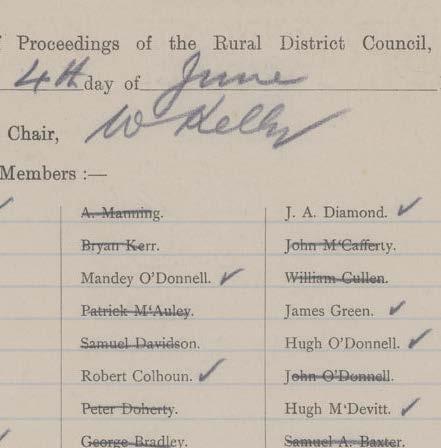 Proceedings of the Rural District Council,
4th day of June
Chair, W Kelly
Members :—
A. Manning. J. A. Diamond.
Bryan Kerr. John M‘Cafferty.
Mandey O’Donnell. William Cullen.
Patrick M‘Auley. James Green.
Samuel Davidson. Hugh O’Donnell.
Robert Colhoun. John O’Donnell.
Peter Doherty. Hugh M‘Devitt.
George Bradley. Samuel A. Baxter.